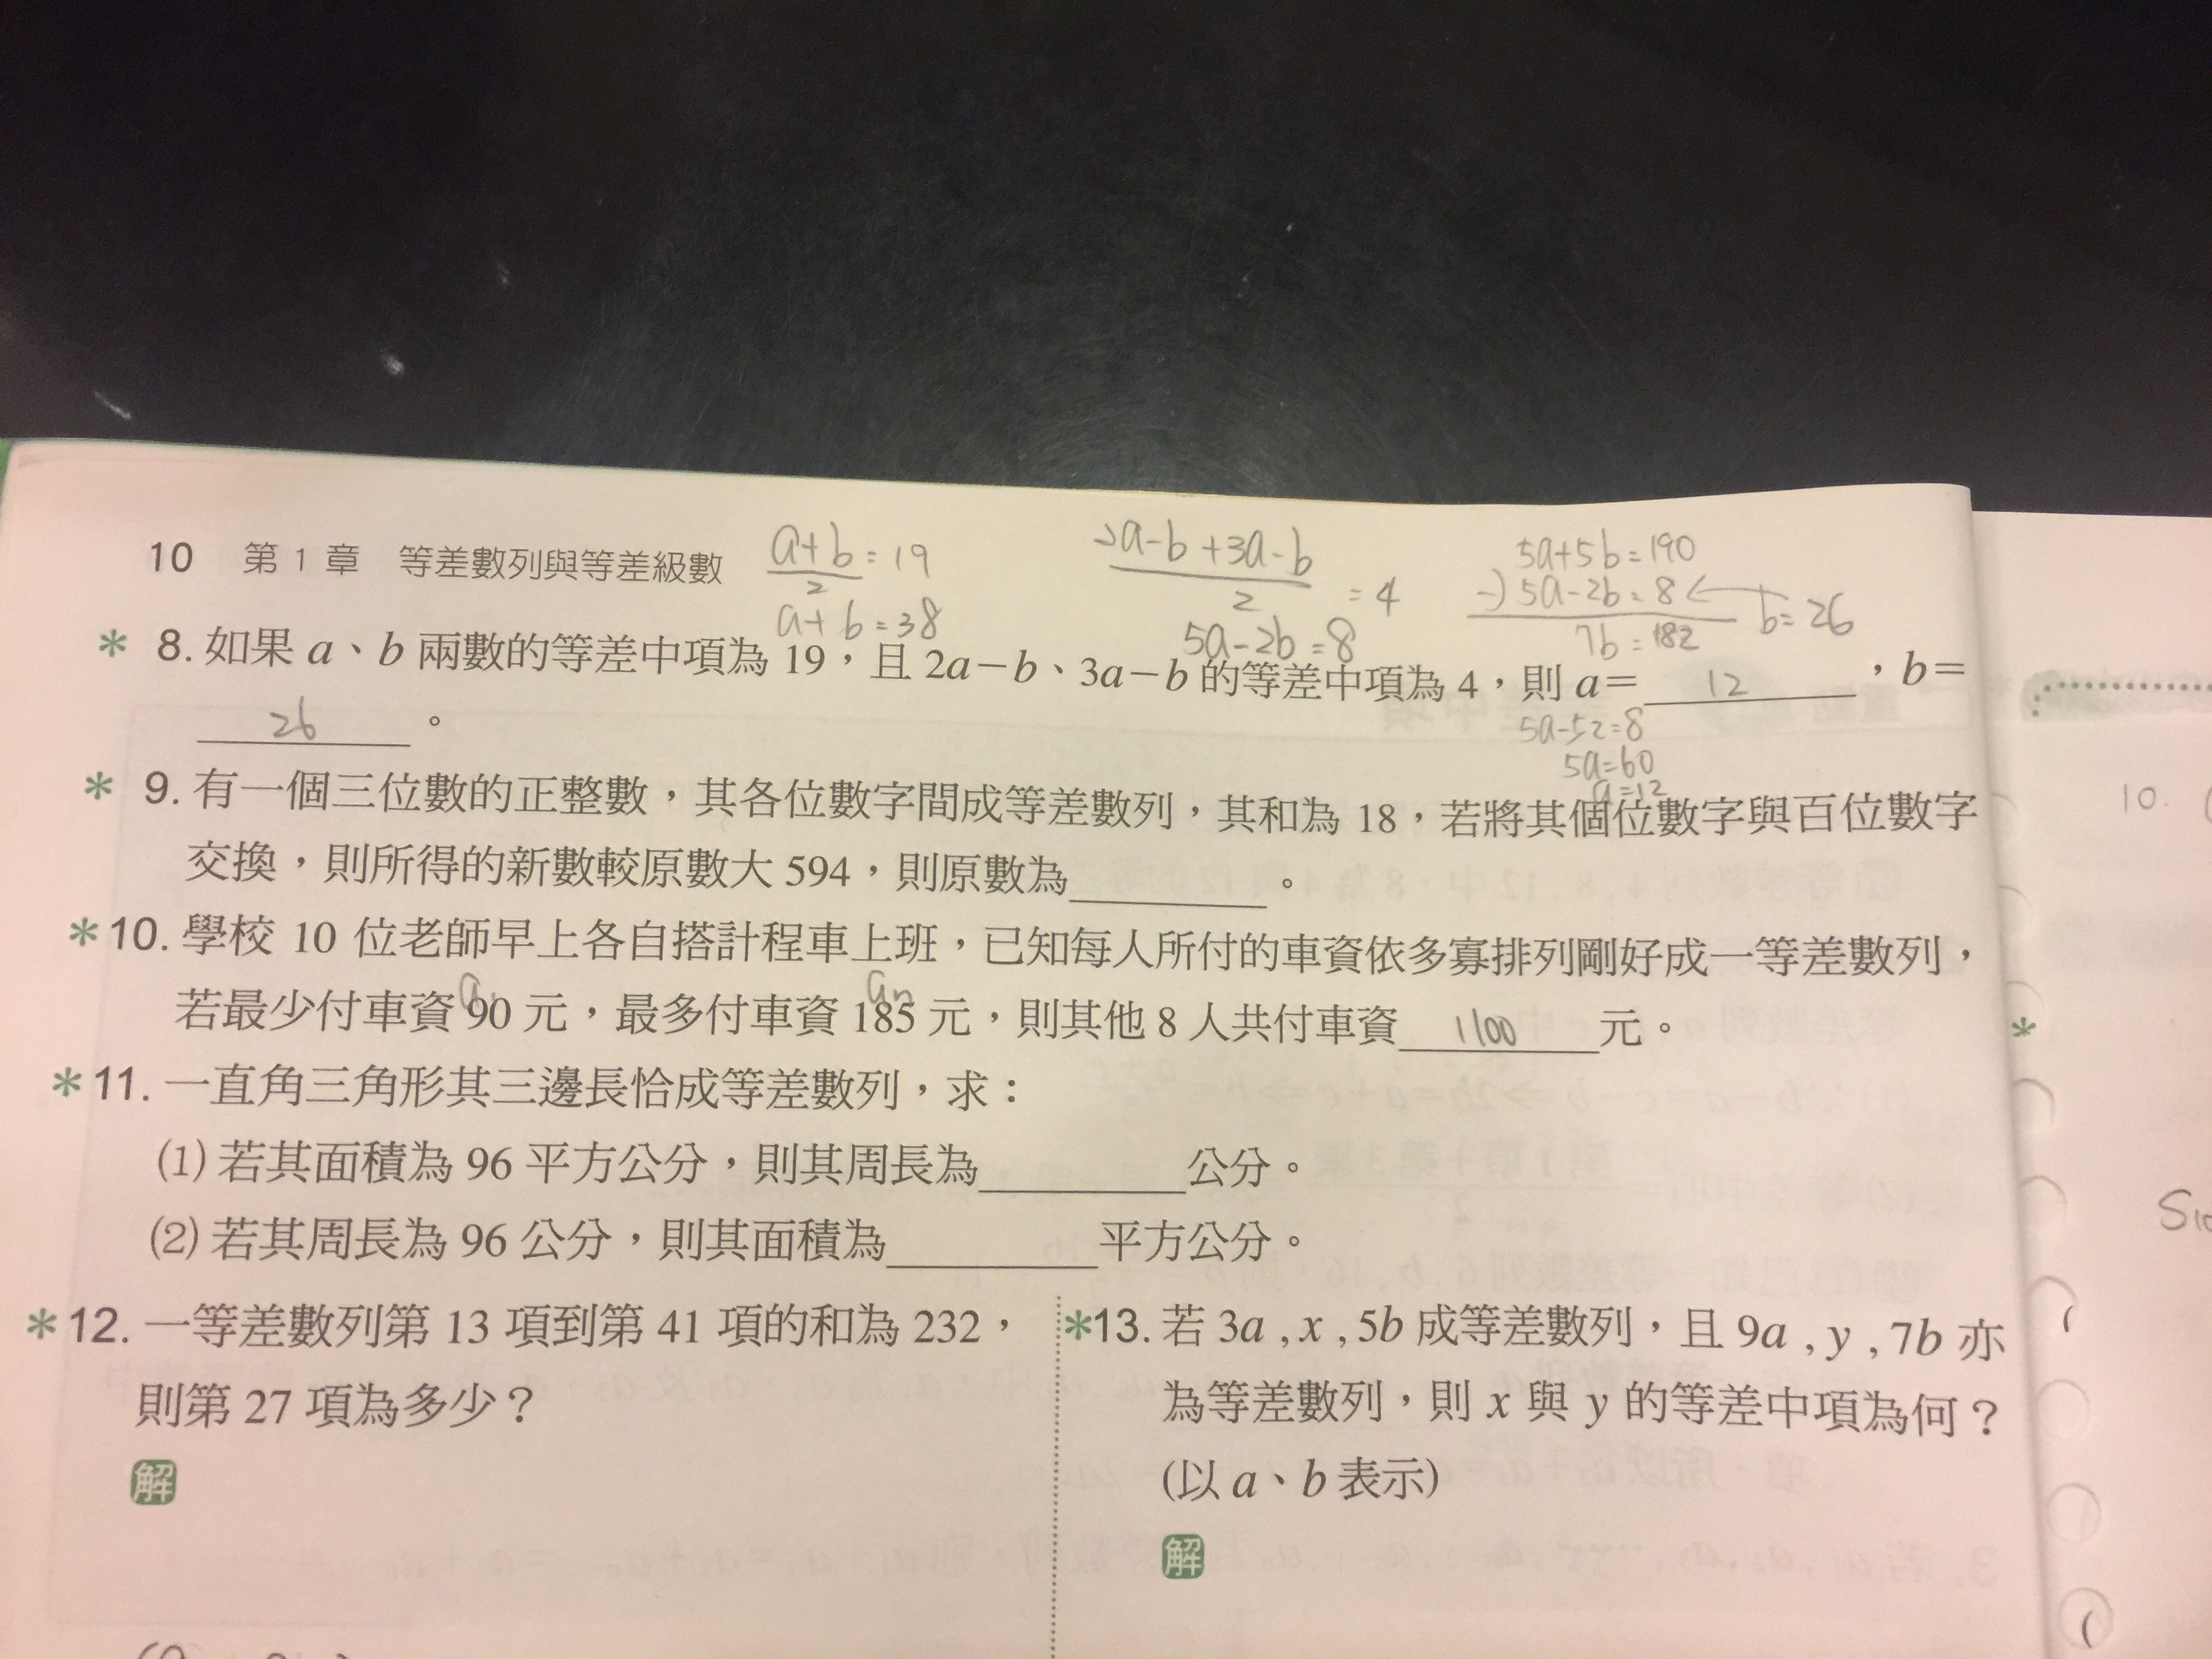 10 第 1 章 等差數列與等差級數
a+b/2 = 19
a+b=38
2a-b+3a-b/2 = 4
5a-2b=8
5a+5b=190
-) 5a-2b=8
7b=182
b=26
* 8. 如果 a、b 兩數的等差中項為 19，且 2a−b、3a−b 的等差中項為 4，則 a= 12 ，b=
26 。
5a-52=8
5a=60
a=12
* 9. 有一個三位數的正整數，其各位數字間成等差數列，其和為 18，若將其個位數字與百位數字
交換，則所得的新數較原數大 594，則原數為 。
10.
*10. 學校 10 位老師早上各自搭計程車上班，已知每人所付的車資依多寡排列剛好成一等差數列，
a₁ aₙ
若最少付車資 90 元，最多付車資 185 元，則其他 8 人共付車資 1100 元。
*
*11. 一直角三角形其三邊長恰成等差數列，求：
(1) 若其面積為 96 平方公分，則其周長為 公分。
(2) 若其周長為 96 公分，則其面積為 平方公分。
*12. 一等差數列第 13 項到第 41 項的和為 232，
則第 27 項為多少？
解
*13. 若 3a , x , 5b 成等差數列，且 9a , y , 7b 亦
為等差數列，則 x 與 y 的等差中項為何？
(以 a、b 表示)
解